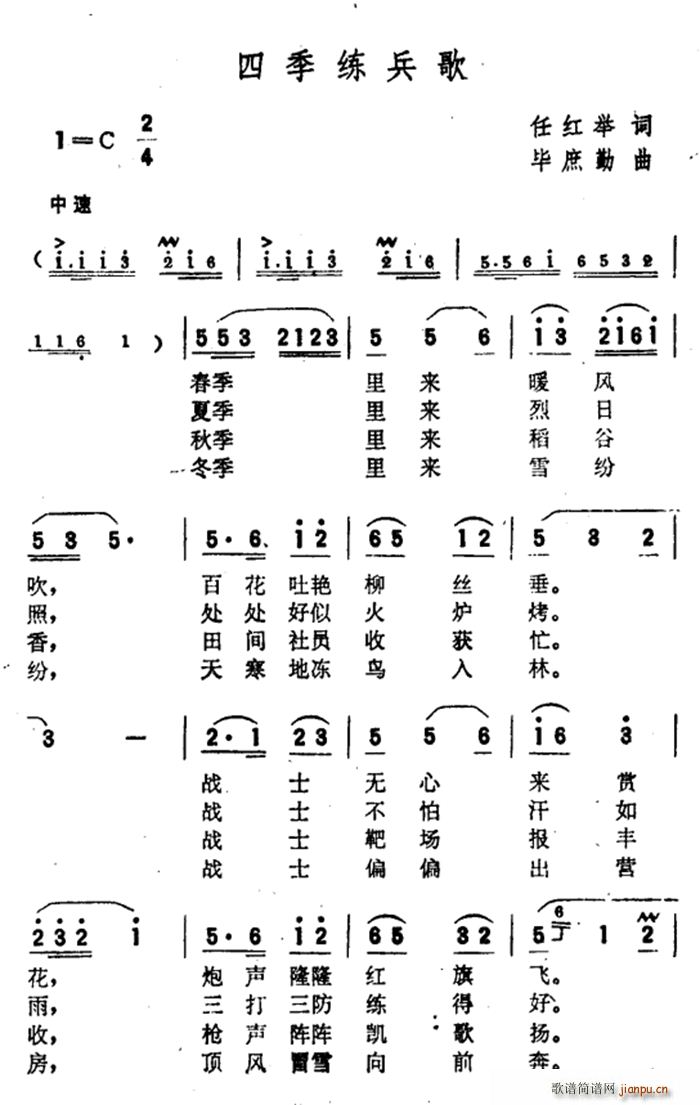 四季练兵歌
1=C 2/4
任红举 词
毕庶勤 曲
中速
( i. i i 3 2 i 6 | i. i i 3 2 i 6 | 5. 5 6 i 6 5 3 2
1 1 6 1 ) | 5 5 3 2 1 2 3 | 5 5 6 | i 3 2 i 6 i
春季 里来 暖风
夏季 里来 烈日
秋季 里来 稻谷
冬季 里来 雪纷
5 3 5. | 5. 6 i 2 | 6 5 1 2 | 5 3 2
吹, 百花吐艳 柳丝 垂。
照, 处处好似 火炉 烤。
香, 田间社员 收获 忙。
纷, 天寒地冻 鸟入 林。
3 — | 2. 1 2 3 | 5 5 6 | i 6 3
战士 无心 来赏
战士 不怕 汗如
战士 靶场 报丰
战士 偏偏 出营
2 3 2 i | 5. 6 i 2 | 6 5 3 2 | 6 5 1 2
花, 炮声隆隆 红旗 飞。
雨, 三打三防 练得 好。
收, 枪声阵阵 凯歌 扬。
房, 顶风冒雪 向前 奔。
歌谱简谱网
jianpu.cn